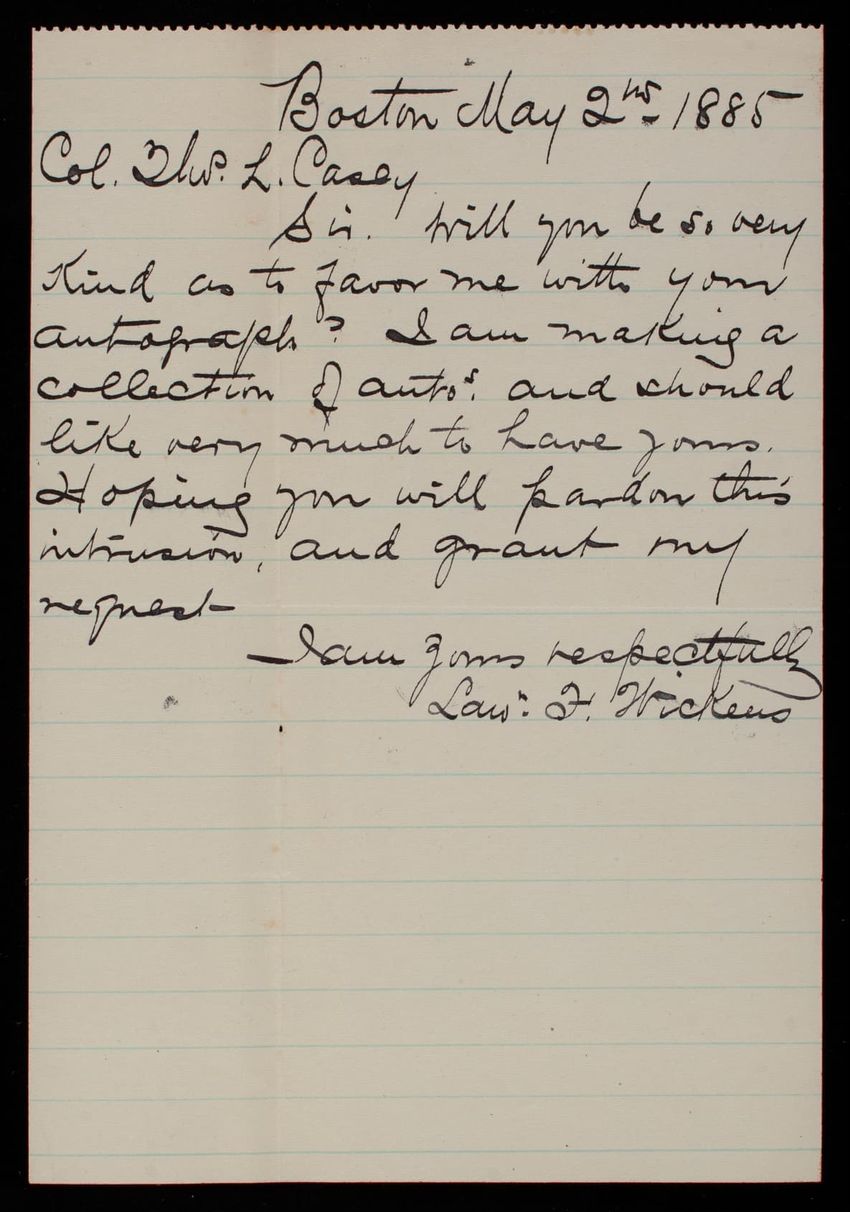 Boston May 2nd 1885
Col. Thos. L. Casey
Sir. Will you be so very
kind as to favor me with your
autograph? I am making a
collection of autos. and should
like very much to have yours.
Hoping you will pardon this
intrusion, and grant my
request
I am yours respectfully
Lawn. F. Wickens